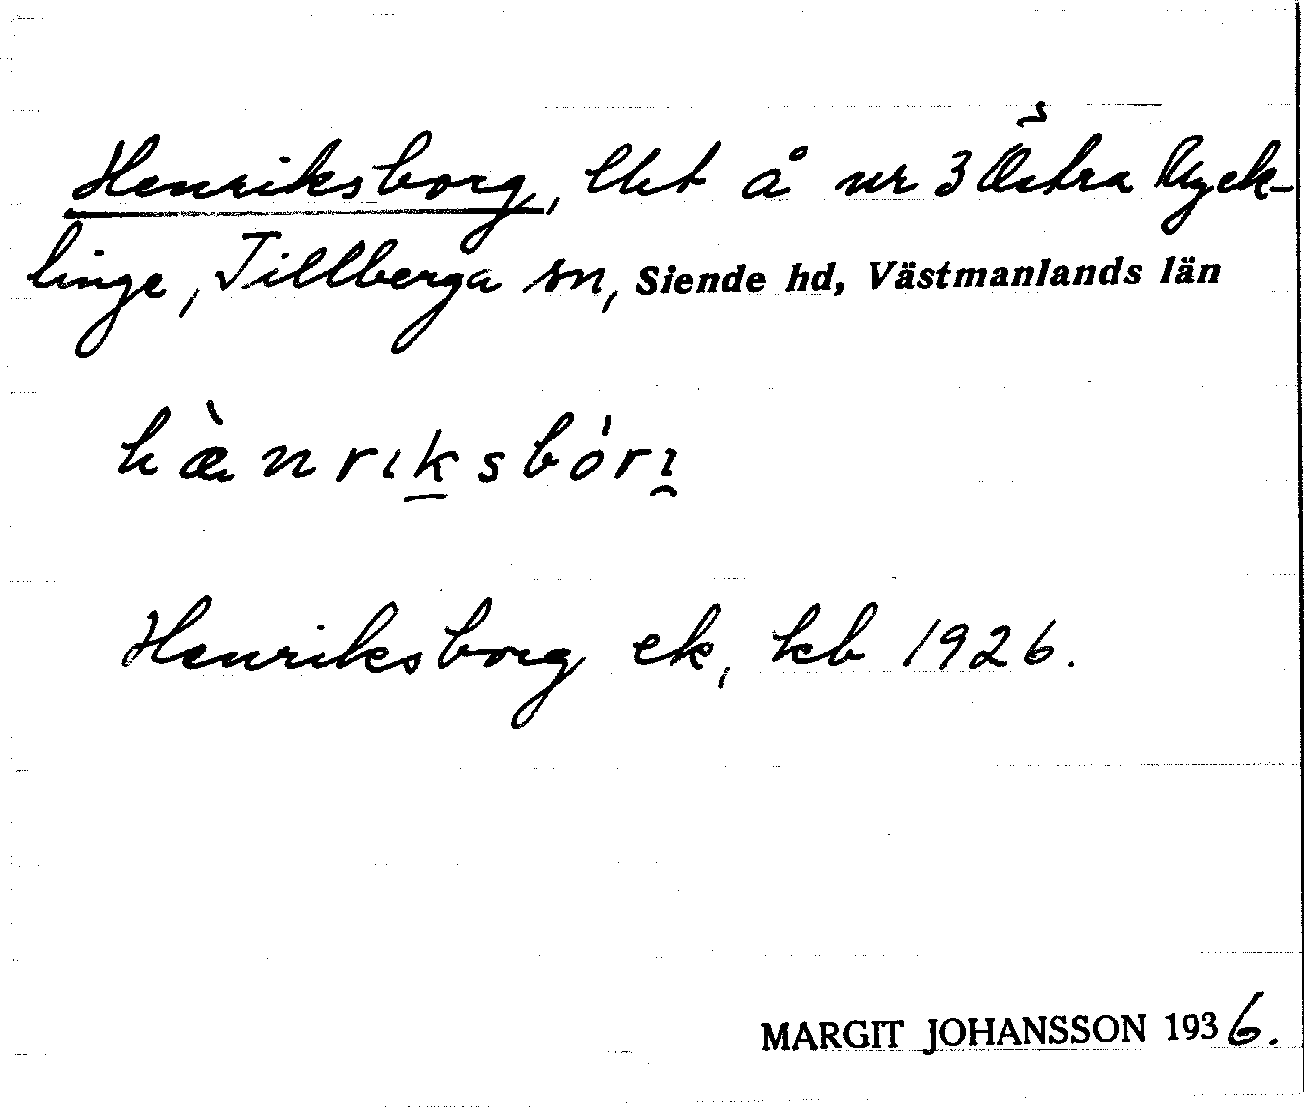 Henriksborg, lht å nr 3 Östra Vyck-
linge, Tillberga sn, Siende hd, Västmanlands län
hæ̀nrık̲sbórı̯
Henriksborg ek, kb 1926.
MARGIT JOHANSSON 1936.